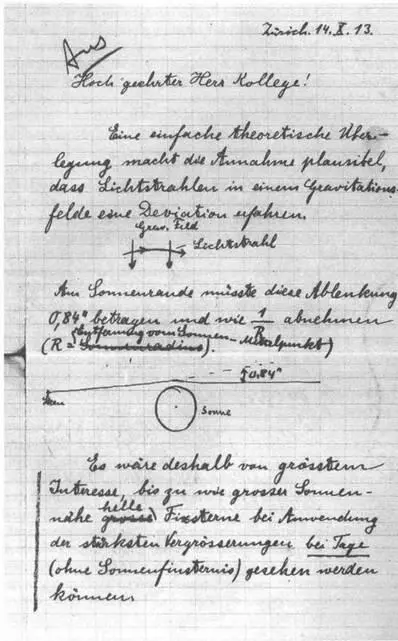 Zürich. 14. X. 13.
Hoch geehrter Herr Kollege!
Eine einfache theoretische Über-
legung macht die Annahme plausibel,
dass Lichtstrahlen in einem Gravitations-
felde eine Deviation erfahren.
Grav. Feld
Lichtstrahl
Am Sonnenrande müsste diese Ablenkung
0,84" betragen und wie 1/R abnehmen
(R = Sonnenradius Entfernung vom Sonnen-Mittelpunkt).
0,84"
Stern
Sonne
Es wäre deshalb von grösstem
Interesse, bis zu wie grosser Sonnen-
nähe grosse helle Fixsterne bei Anwendung
der stärksten Vergrösserungen bei Tage
(ohne Sonnenfinsternis) gesehen werden
können.